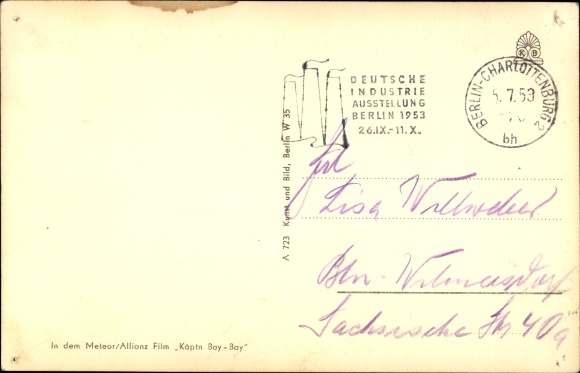 K B
DEUTSCHE
INDUSTRIE
AUSSTELLUNG
BERLIN 1953
26.IX.-11.X.
BERLIN-CHARLOTTENBURG 2
5.7.53
bh
A 723 Kunst und Bild, Berlin W 35
Frl
Lisa
Bln-Wilmersdorf
Sächsische Str 40a
In dem Meteor/Allianz Film „Käptn Bay-Bay"